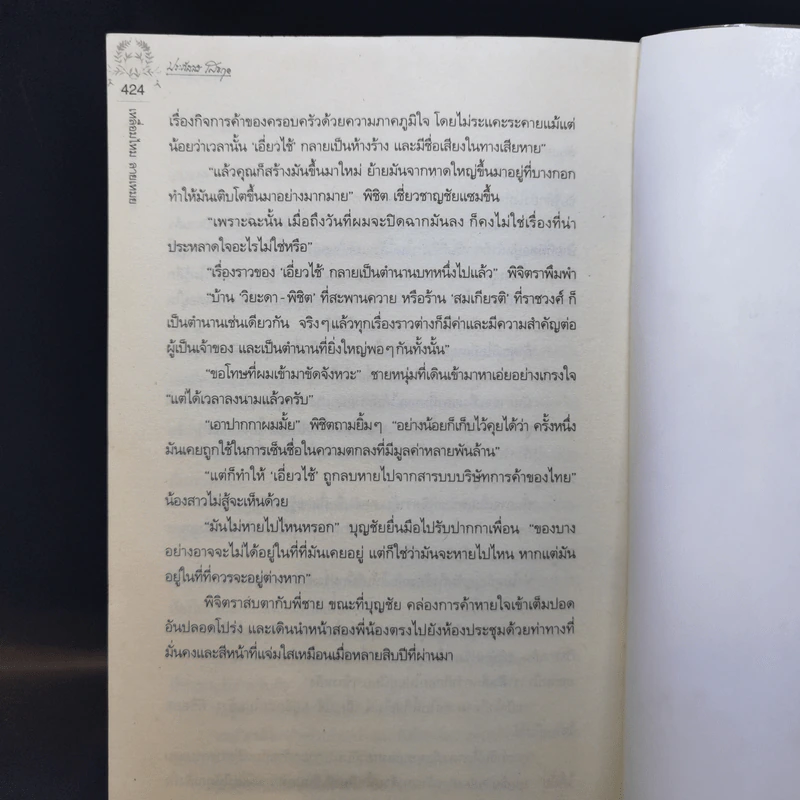 424
เหลี่ยมไหม ลายเหมย
เรื่องกิจการค้าของครอบครัวด้วยความภาคภูมิใจ โดยไม่ระแคะระคายแม้แต่
น้อยว่าเวลานั้น 'เอี่ยวไช้' กลายเป็นห้างร้าง และมีชื่อเสียงในทางเสียหาย"
"แล้วคุณก็สร้างมันขึ้นมาใหม่ ย้ายมันจากหาดใหญ่ขึ้นมาอยู่ที่บางกอก
ทำให้มันเติบโตขึ้นมาอย่างมากมาย" พิชิต เชี่ยวชาญชัยแซมขึ้น
"เพราะฉะนั้น เมื่อถึงวันที่ผมจะปิดฉากมันลง ก็คงไม่ใช่เรื่องที่น่า
ประหลาดใจอะไรไม่ใช่หรือ"
"เรื่องราวของ 'เอี่ยวไช้' กลายเป็นตำนานบทหนึ่งไปแล้ว" พิจิตราพึมพำ
"บ้าน 'วิยะดา - พิชิต' ที่สะพานควาย หรือร้าน 'สมเกียรติ' ที่ราชวงศ์ ก็
เป็นตำนานเช่นเดียวกัน จริงๆ แล้วทุกเรื่องราวต่างก็มีค่าและมีความสำคัญต่อ
ผู้เป็นเจ้าของ และเป็นตำนานที่ยิ่งใหญ่พอๆ กันทั้งนั้น"
"ขอโทษที่ผมเข้ามาขัดจังหวะ" ชายหนุ่มที่เดินเข้ามาหาเอ่ยอย่างเกรงใจ
"แต่ได้เวลาลงนามแล้วครับ"
"เอาปากกาผมมั้ย" พิชิตถามยิ้มๆ "อย่างน้อยก็เก็บไว้คุยได้ว่า ครั้งหนึ่ง
มันเคยถูกใช้ในการเซ็นชื่อในความตกลงที่มีมูลค่าหลายพันล้าน"
"แต่ก็ทำให้ 'เอี่ยวไช้' ถูกลบหายไปจากสารบบบริษัทการค้าของไทย"
น้องสาวไม่สู้จะเห็นด้วย
"มันไม่หายไปไหนหรอก" บุญชัยยื่นมือไปรับปากกาเพื่อน "ของบาง
อย่างอาจจะไม่ได้อยู่ในที่ที่มันเคยอยู่ แต่ก็ใช่ว่ามันจะหายไปไหน หากแต่มัน
อยู่ในที่ที่ควรจะอยู่ต่างหาก"
พิจิตราสบตากับพี่ชาย ขณะที่บุญชัย คล่องการค้าหายใจเข้าเต็มปอด
อันปลอดโปร่ง และเดินนำหน้าสองพี่น้องตรงไปยังห้องประชุมด้วยท่าทางที่
มั่นคงและสีหน้าที่แจ่มใสเหมือนเมื่อหลายสิบปีที่ผ่านมา